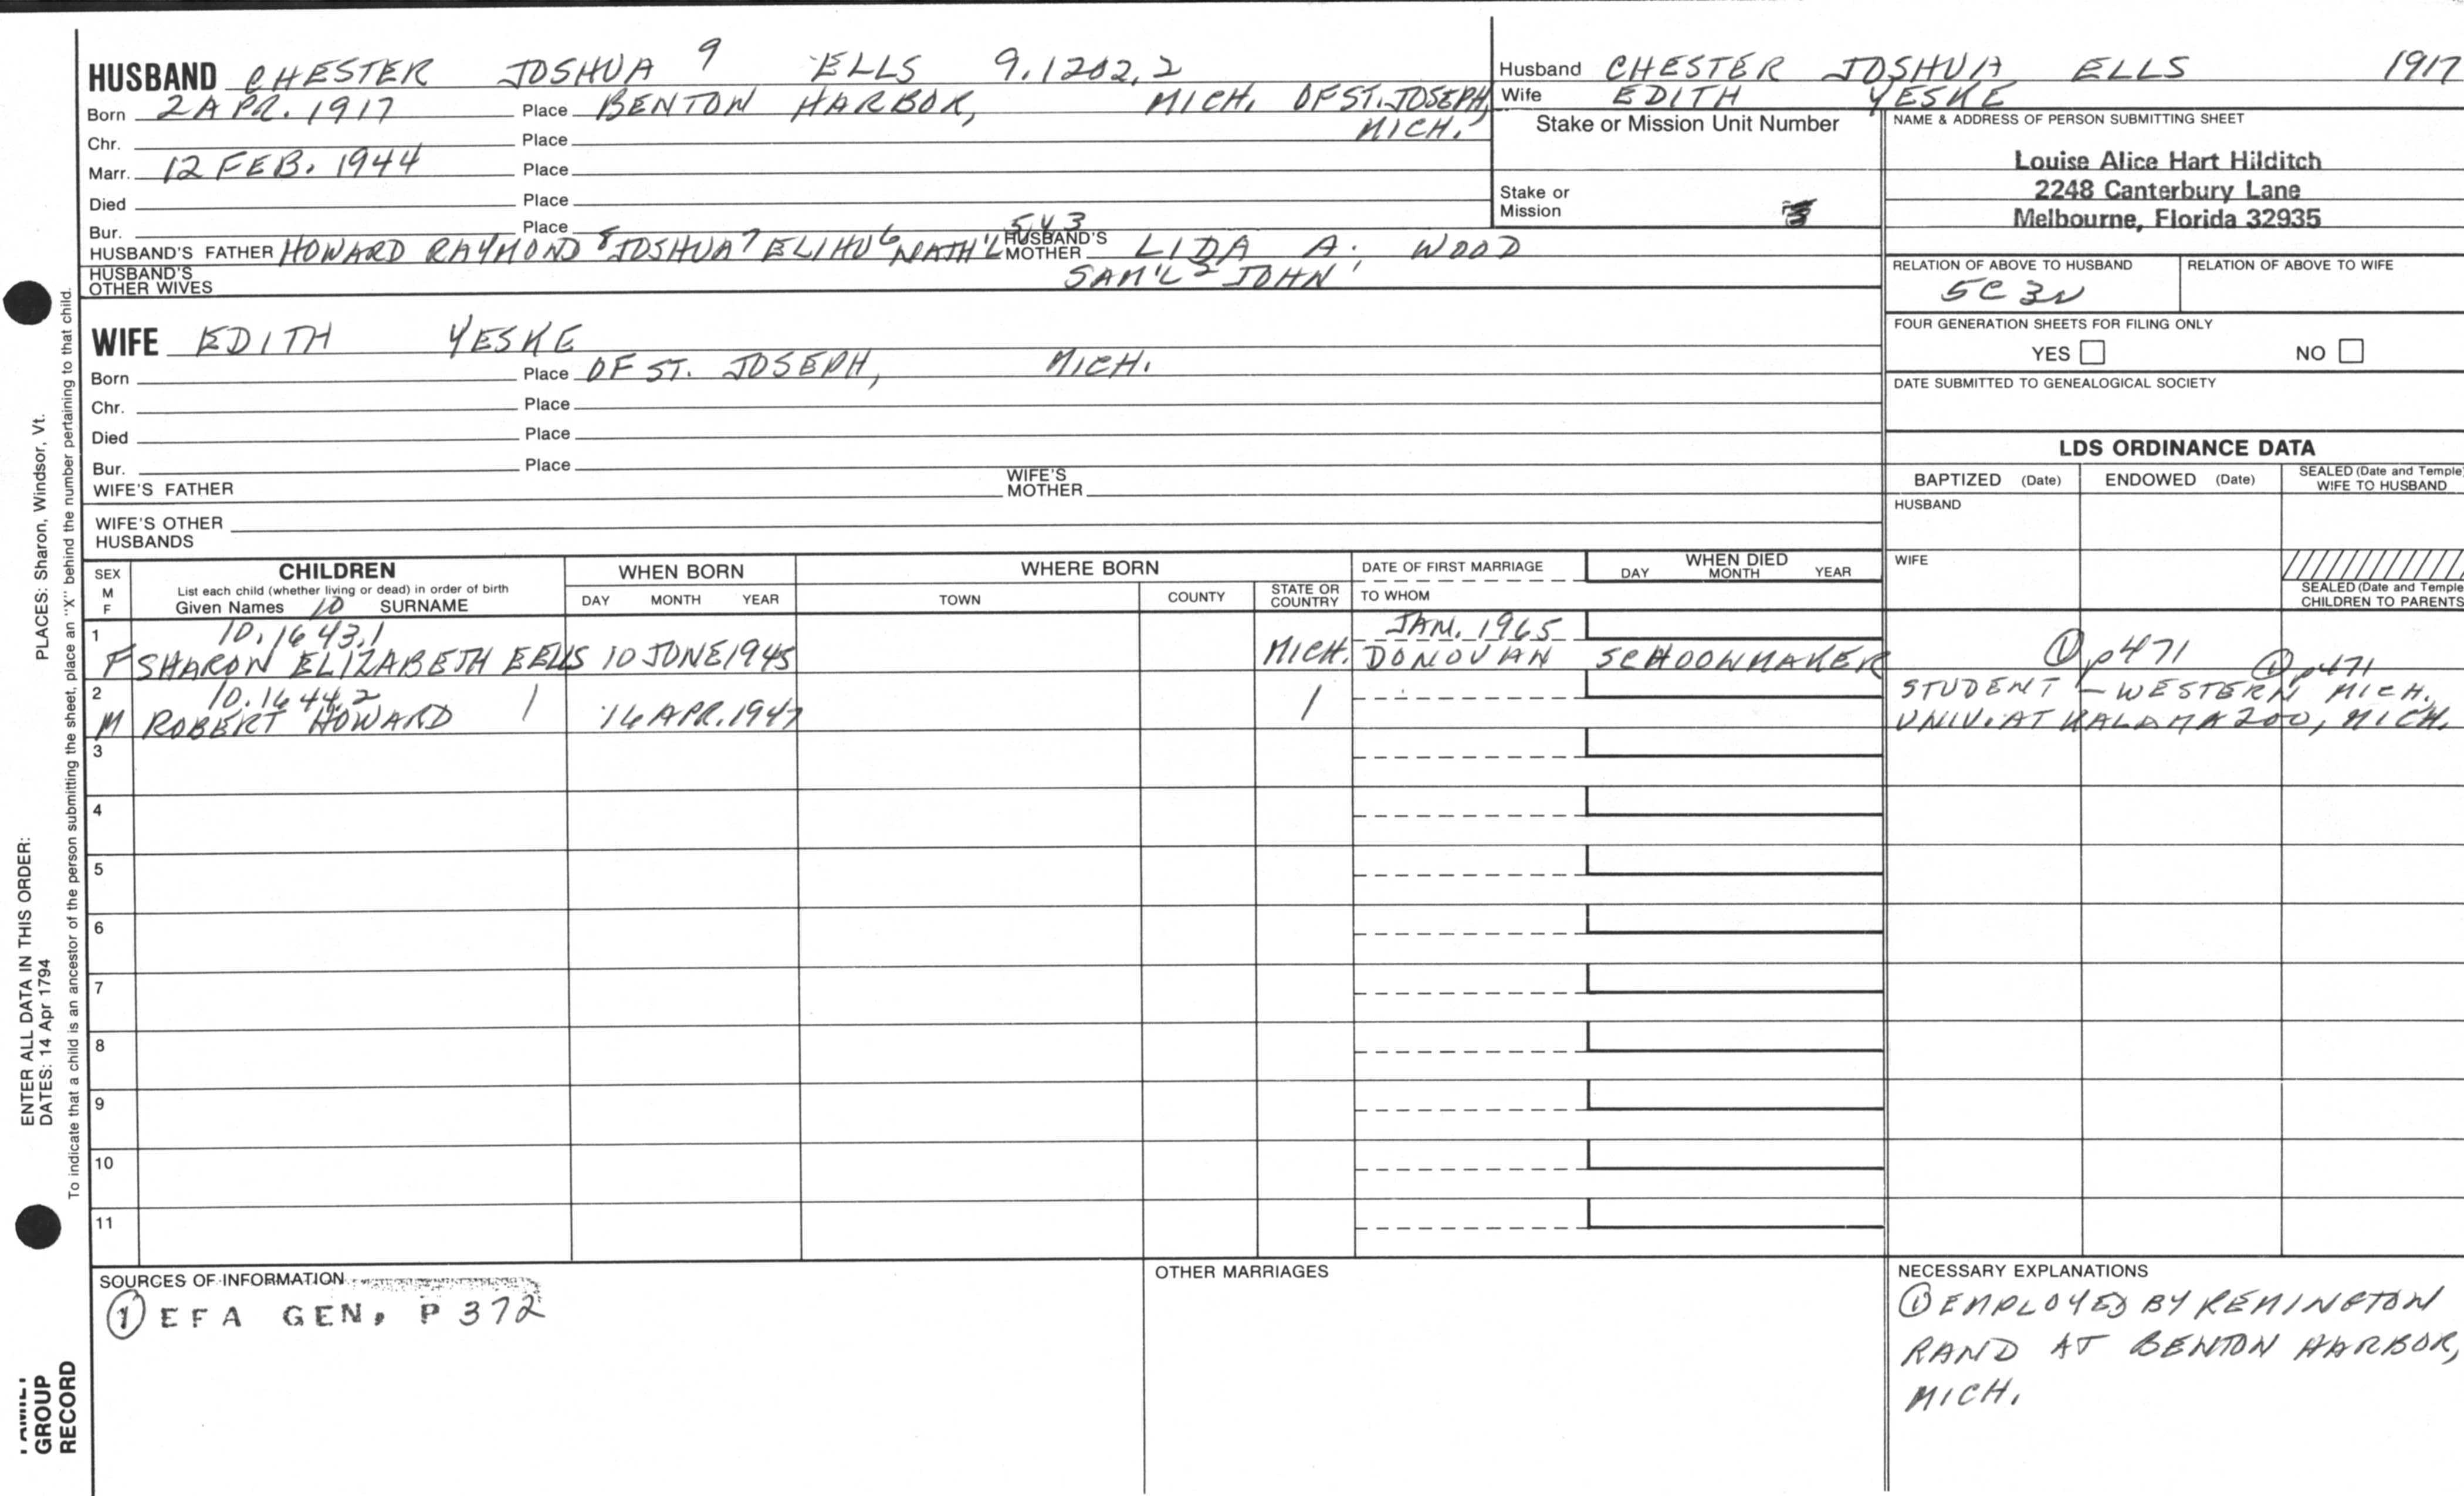 HUSBAND CHESTER JOSHUA 9 ELLS 9.1202.2
Born 2 APR. 1917 Place BENTON HARBOR, MICH. OF ST. JOSEPH,
MICH.
Chr. Place
Marr. 12 FEB. 1944 Place
Died Place
Bur. Place
5 4 3
HUSBAND'S FATHER HOWARD RAYMOND 8 JOSHUA 7 ELIHU 6 NATH'L HUSBAND'S MOTHER LIDA A. WOOD
SAM'L 2 JOHN 1
HUSBAND'S OTHER WIVES
WIFE EDITH YESKE
Born Place OF ST. JOSEPH, MICH.
Chr. Place
Died Place
Bur. Place
WIFE'S FATHER WIFE'S MOTHER
WIFE'S OTHER HUSBANDS
Husband CHESTER JOSHUA ELLS 1917
Wife EDITH YESKE
Stake or Mission Unit Number
Stake or
Mission
NAME & ADDRESS OF PERSON SUBMITTING SHEET
Louise Alice Hart Hilditch
2248 Canterbury Lane
Melbourne, Florida 32935
RELATION OF ABOVE TO HUSBAND RELATION OF ABOVE TO WIFE
5C 3N
FOUR GENERATION SHEETS FOR FILING ONLY
YES NO
DATE SUBMITTED TO GENEALOGICAL SOCIETY
LDS ORDINANCE DATA
BAPTIZED (Date) ENDOWED (Date) SEALED (Date and Temple)
WIFE TO HUSBAND
HUSBAND
WIFE
SEALED (Date and Temple)
CHILDREN TO PARENTS
SEX
M
F
CHILDREN
List each child (whether living or dead) in order of birth
Given Names 10 SURNAME
WHEN BORN
DAY MONTH YEAR
WHERE BORN
TOWN COUNTY STATE OR COUNTRY
DATE OF FIRST MARRIAGE
TO WHOM
WHEN DIED
DAY MONTH YEAR
1 10.1643.1 JAN. 1965
F SHARON ELIZABETH EELLS 10 JUNE 1945 MICH. DONOVAN SCHOONMAKER ① p471 ① p471
2 10.1644.2 STUDENT - WESTERN MICH.
M ROBERT HOWARD 1 16 APR. 1947 1 UNIV. AT KALAMAZOO, MICH.
3
4
5
6
7
8
9
10
11
SOURCES OF INFORMATION
① EFA GEN. P 372
OTHER MARRIAGES
NECESSARY EXPLANATIONS
① EMPLOYED BY REMINGTON
RAND AT BENTON HARBOR,
MICH.
ENTER ALL DATA IN THIS ORDER:
DATES: 14 Apr 1794 PLACES: Sharon, Windsor, Vt.
To indicate that a child is an ancestor of the person submitting the sheet, place an "X" behind the number pertaining to that child.
FAMILY
GROUP
RECORD